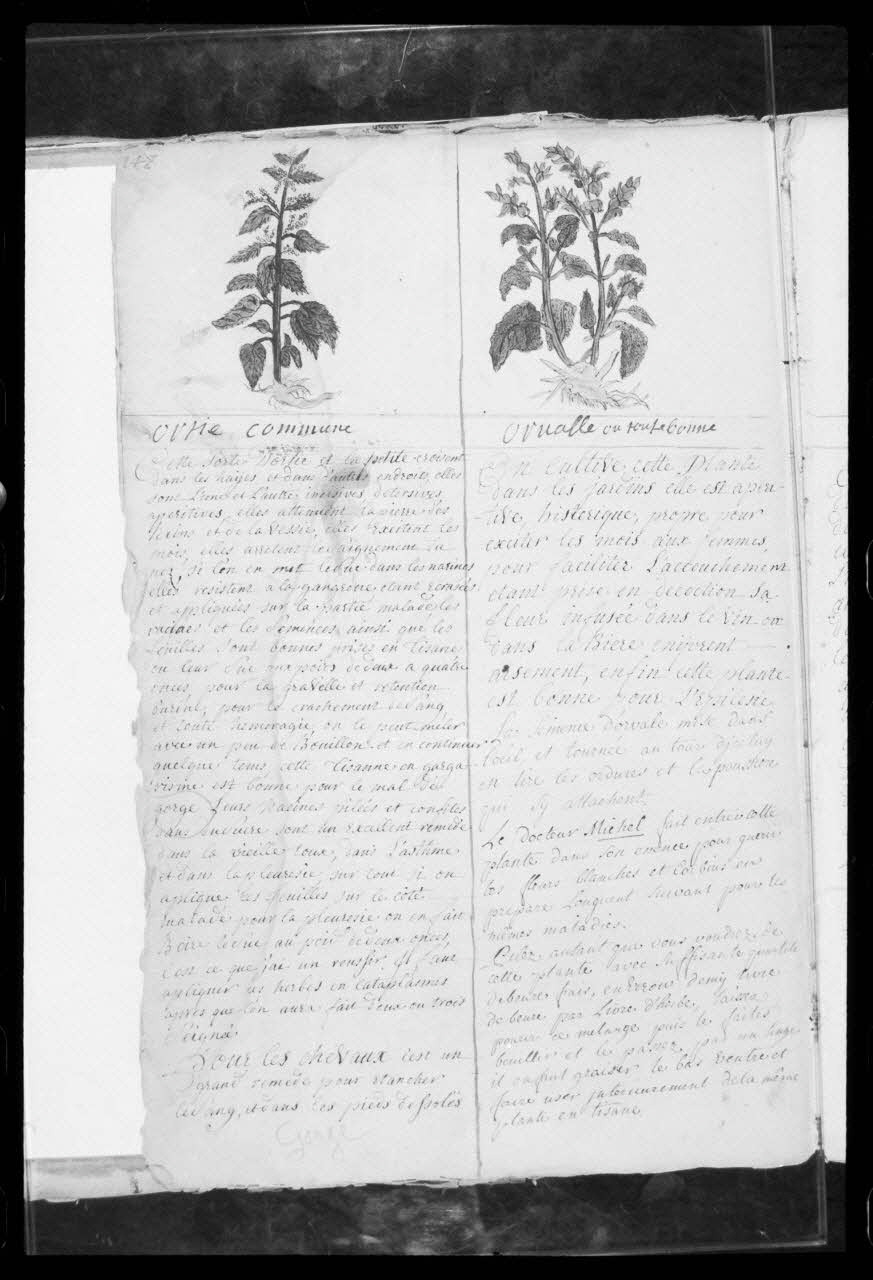 148
ortie commune
Cette sorte d'ortie et la petite croisent
dans les hayes et dans d'autes endroits, elles
sont L'une et L'autre incisives, detersives,
aperitives, elles attenuent la pierre des
Reins et de la Vessie, elles Exitent les
mois, elles arretent le saignement du
nez, si lon en met le suc dans les narines
elles resistent a la gangrene etant ecrasées
et appliquées sur la partie malade, les
racines et les semences ainsi que les
feuilles sont bonnes prises en tisane
ou leur suc au poids de deux a quatre
onces, pour la gravelle et retention
d'urine, pour le crachement de sang
et toute hemoragie, on le peut meler
avec un peu de Bouillon et en continuer
quelque tems, cette tisanne en garga
risme est bonne pour le mal de
gorge. Leurs Racines pilées et confites
dans sucre sont un excellent remede
dans la vieille toux, dans l'asthme
et dans la pleuresie sur tout si on
aplique les feuilles sur le côté
malade pour la pleuresie on en fait
Boire le suc au poid de deux onces,
c'est ce que j'ai un reussir. il faut
apliquer les herbes en cataplasmes
apres que l'on aura fait deux ou trois
seignés
Pour les chevaux c'est un
grand remede pour etancher
le sang, et dans les pieds dessolés
Gorge
orualle ou toute bonne
On cultive cette Plante
dans les jardins elle est aperi-
tive, histerique, propre pour
exciter les mois aux femmes,
pour faciliter l'accouchement
etant prise en decoction. Sa
fleur infusée dans le vin ou
dans la Biere enivrent
aisement, enfin cette plante
est bonne pour L'Epilesie
La semence d'orvale mise dans
l'oeil, et tournée au tour
en tire les ordures et la poussiere
qui s'y attachent.
Le docteur Michel fait entrer cette
plante dans son pour guerir
les fleurs blanches et en
prepare l'onguent suivant pour les
mêmes maladies.
Pilez autant que vous voudrez de
cette plante avec suffisante quantité
de beure frais, environs demy livre
de beure par Livre d'herbe, laissez
pourir ce melange puis le faites
bouillir et le passez par un linge
il en faut graiser le bas ventre et
faire user interieurement de la même
plante en tisane